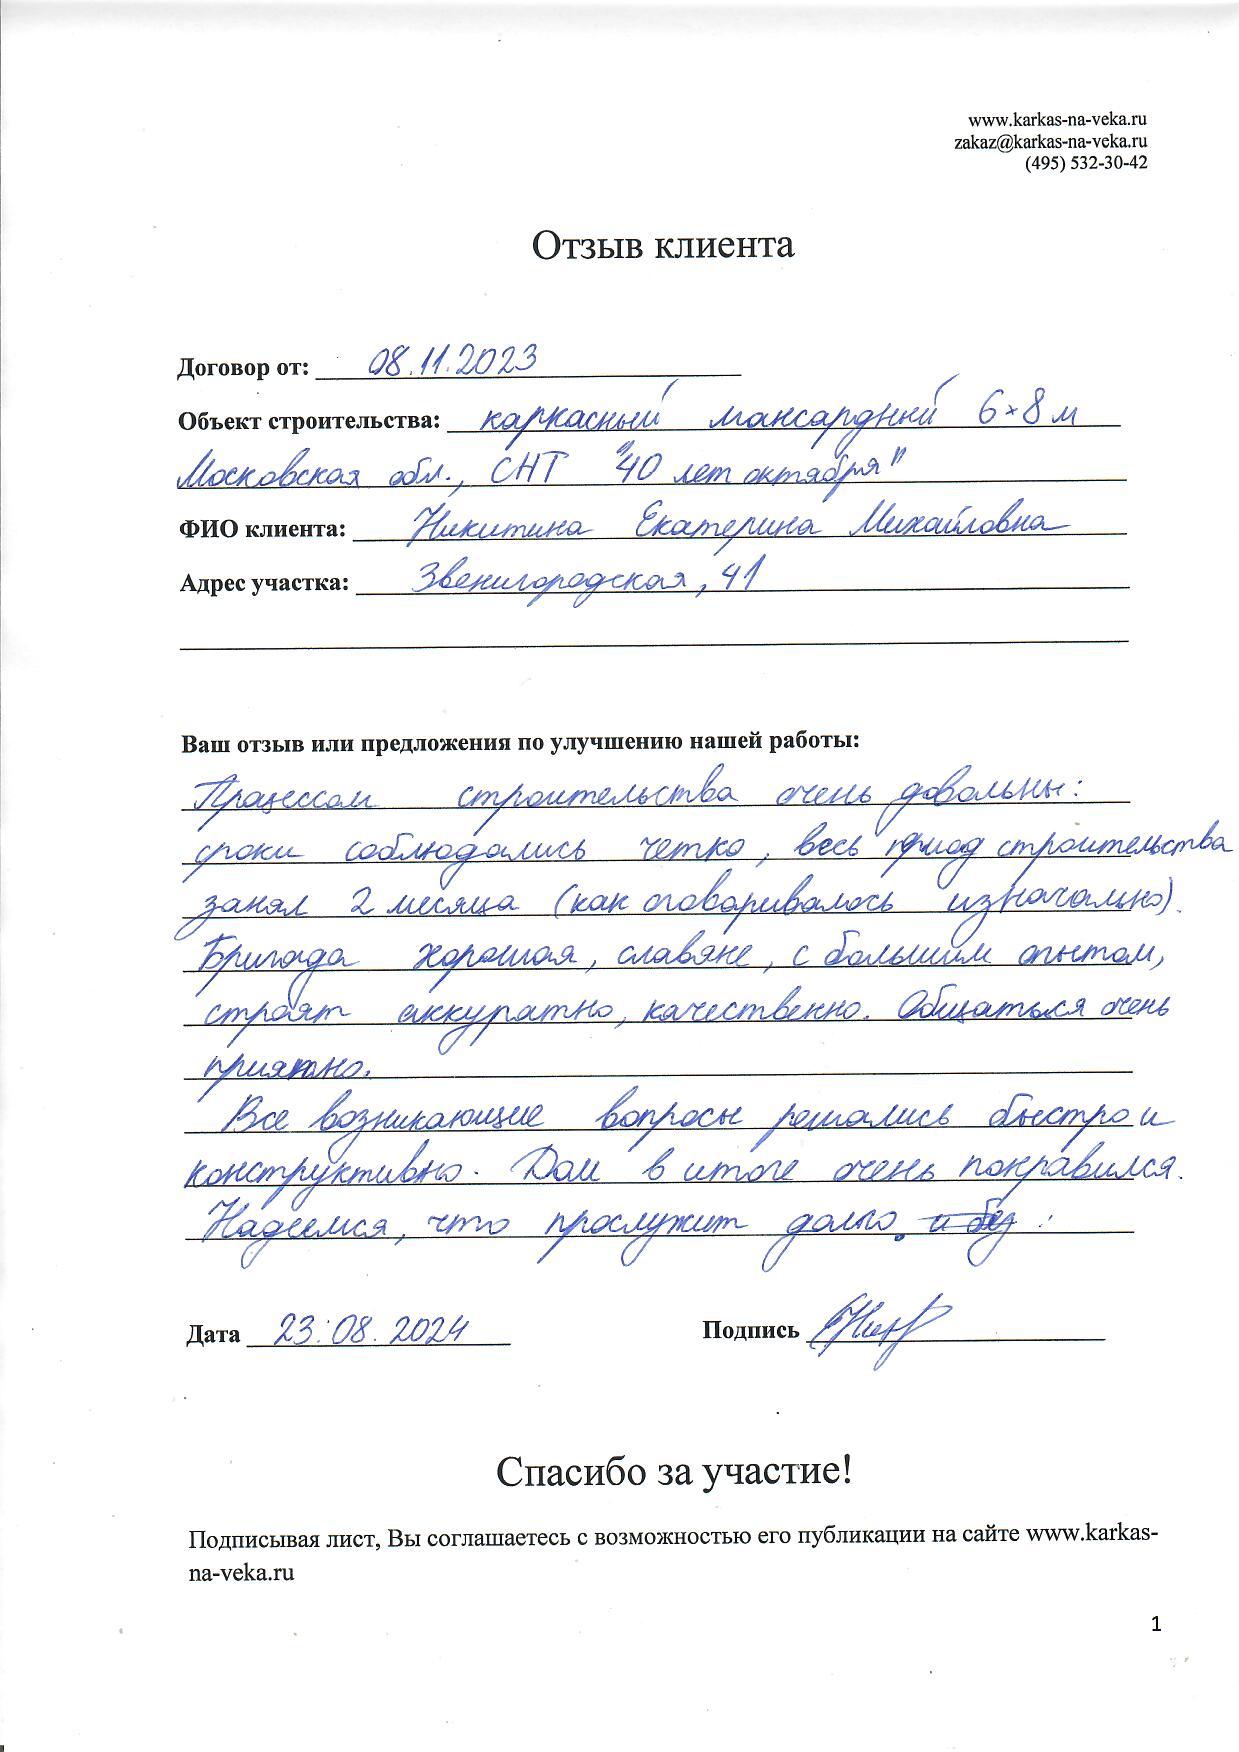 www.karkas-na-veka.ru
zakaz@karkas-na-veka.ru
(495) 532-30-42
Отзыв клиента
Договор от: 08.11.2023
Объект строительства: каркасный мансардный 6×8 м
Московская обл., СНТ "40 лет октября"
ФИО клиента: Никитина Екатерина Михайловна
Адрес участка: Звенигородская, 41
Ваш отзыв или предложения по улучшению нашей работы:
Процессом строительства очень довольны:
сроки соблюдались четко, весь период строительства
занял 2 месяца (как оговаривалось изначально).
Бригада хорошая, славяне, с большим опытом,
строят аккуратно, качественно. Общаться очень
приятно.
Все возникающие вопросы решались быстро и
конструктивно. Дом в итоге очень понравился.
Надеемся, что прослужит долго. и без
Дата 23.08.2024 Подпись
Спасибо за участие!
Подписывая лист, Вы соглашаетесь с возможностью его публикации на сайте www.karkas-
na-veka.ru
1